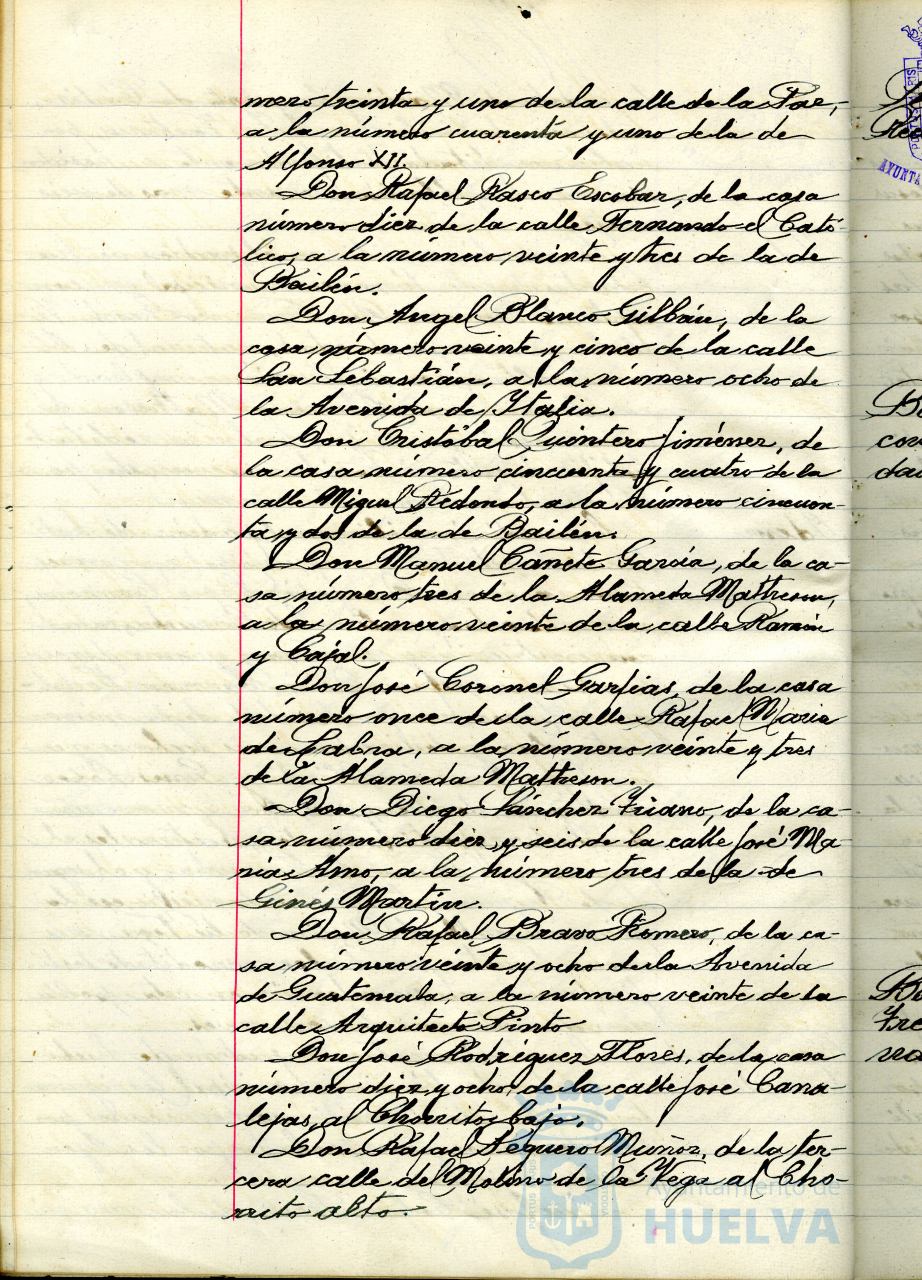 mero treinta y uno de la calle de la Paz,
a la número cuarenta y uno de la de
Alfonso XII.
Don Rafael Rasco Escobar, de la casa
número diez de la calle Fernando el Cató-
lico, a la número veinte y tres de la de
Bailén.
Don Angel Blanco Gilbán, de la
casa número veinte y cinco de la calle
San Sebastián, a la número ocho de
la Avenida de Italia.
Don Cristóbal Quintero Jiménez, de
la casa número cincuenta y cuatro de la
calle Miguel Redondo, a la número cincuen-
ta y dos de la de Bailén.
Don Manuel Cañete García, de la ca-
sa número tres de la Alameda Mattheson,
a la número veinte de la calle Ramón
y Cajal.
Don José Coronel Garfias, de la casa
número once de la calle Rafael María
de Labra, a la número veinte y tres
de la Alameda Mattheson.
Don Diego Sánchez de la ca-
sa número diez y seis de la calle José Ma-
ría Amo, a la número tres de la de
Ginés Martin.
Don Rafael Bravo Romero, de la ca-
sa número veinte y ocho de la Avenida
de Guatemala, a la número veinte de la
calle Arquitecto Pinto
Don José Rodríguez Flores, de la casa
número diez y ocho, de la calle José Cana-
lejas, al Chorrito bajo.
Don Rafael Seguero Muñoz, de la ter-
cera calle del Molino de la Vega al Cho-
rrito alto.
Ayuntamiento de
HUELVA